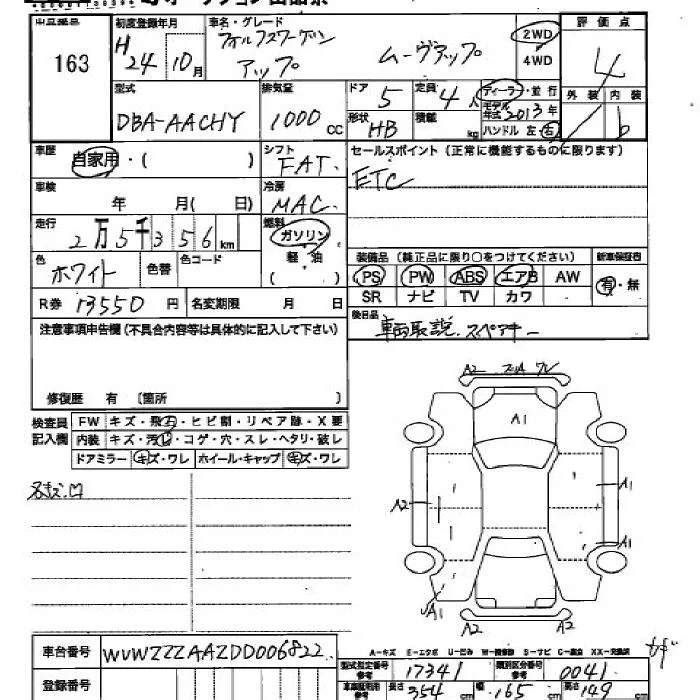 出品番号 初度登録年月 車名・グレード 評価点
163 H 24 10月 フォルクスワーゲン アップ ムーヴアップ 2WD 4WD 4
型式 排気量 ドア 5 定員 4人 ディーラー・並行 外装 内装
DBA-AACHY 1000cc 形状 HB 積載 kg モデル年式 2013年 ハンドル 左・右 b
車歴 自家用・( ) シフト FAT セールスポイント(正常に機能するものに限ります)
車検 年 月( 日) 冷房 MAC ETC
走行 2万5千356km 燃料 ガソリン・軽油 ( )
色 ホワイト 色替 色コード
装備品(純正品に限り○をつけてください) 新車保証書
PS PW ABS エアB AW 有・無
SR ナビ TV カワ
R券 13550円 名変期限 月 日
後日品 車両取説、スペアキー
注意事項申告欄(不具合内容等は具体的に記入して下さい)
修復歴 有 〔箇所 〕
検査員記入欄 FW キズ・飛石・ヒビ割・リペア跡・X要
内装 キズ・汚レ・コゲ・穴・スレ・ヘタリ・破レ
ドアミラー キズ・ワレ ホイール・キャップ キズ・ワレ
A2
A1
A2 A1
A1
A1
A2 A2
A-キズ E-エクボ U-凹み W-補修跡 S-サビ C-腐食 XX-交換済
車台番号 WVWZZZAAZDD006822
型式指定番号 参考 17341 類別区分番号 参考 0041
登録番号
長さ 354cm 幅 165cm 高さ 149cm